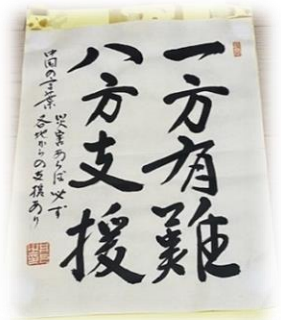 一方有難
八方支援
災害あらば必ず
各地からの支援あり
中国の言葉